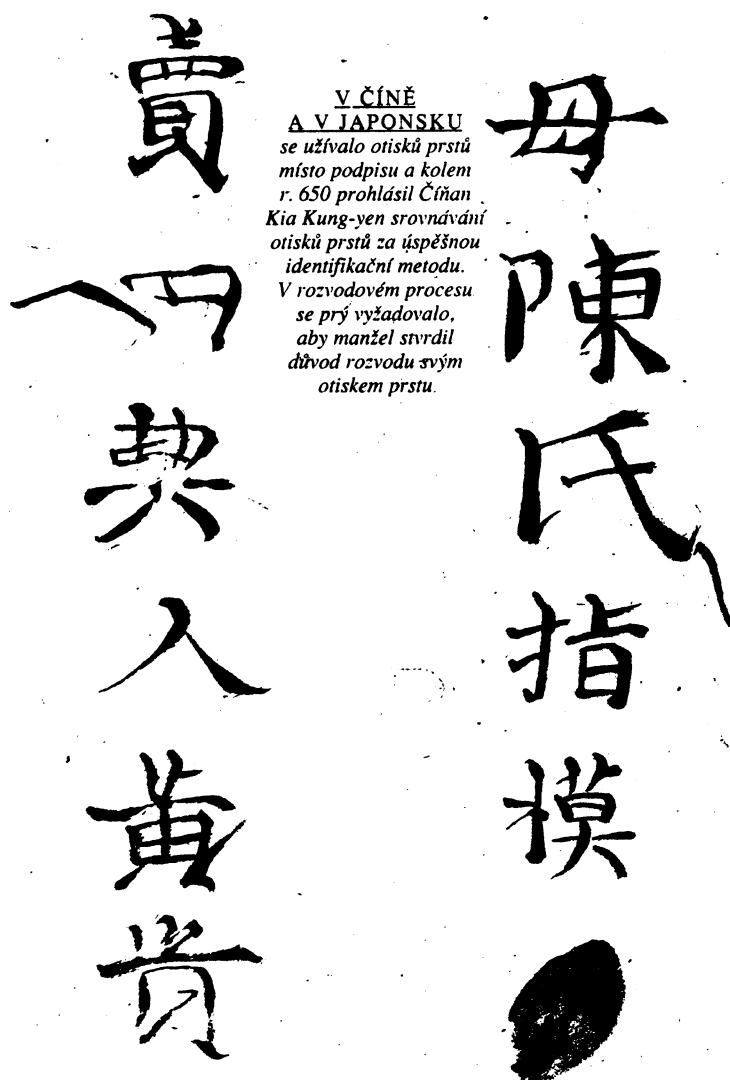 V ČÍNĚ
A V JAPONSKU
se užívalo otisků prstů
místo podpisu a kolem
r. 650 prohlásil Číňan
Kia Kung-yen srovnávání
otisků prstů za úspěšnou
identifikační metodu.
V rozvodovém procesu
se prý vyžadovalo,
aby manžel stvrdil
důvod rozvodu svým
otiskem prstu.
母陳氏指模
賣契人黃貴